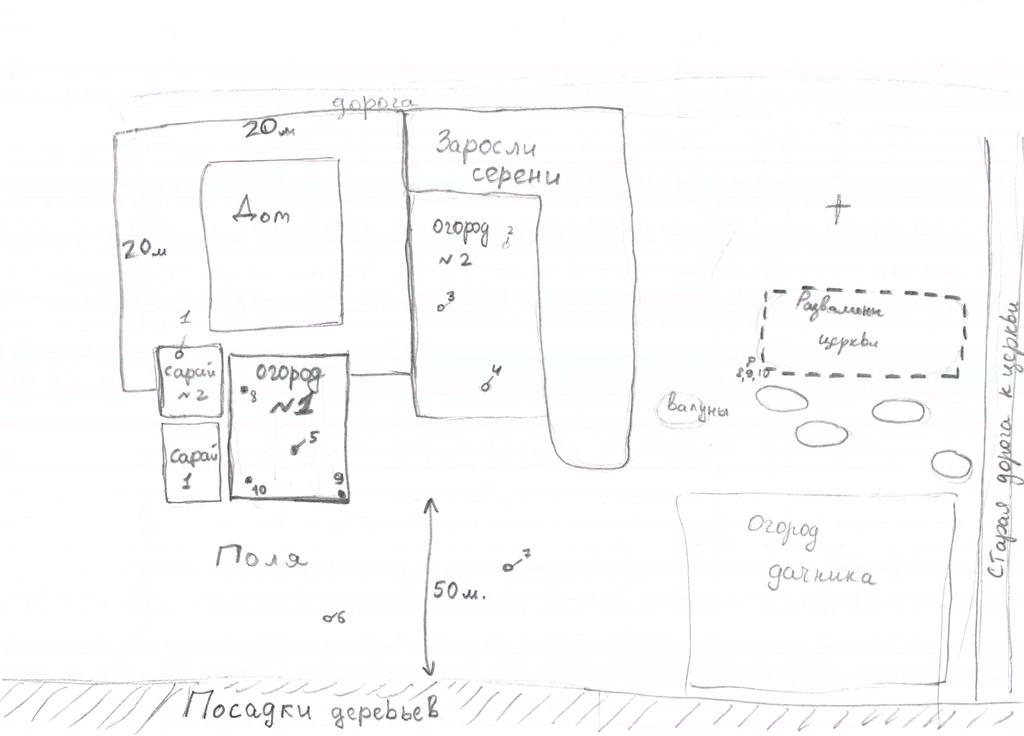 дорога
20м
Заросли
серени
Дом
20м
огород
№2
2
3
4
1
Сарай
№2
Сарай
1
огород
№1
8
5
10
9
Развалины
церкви
8,9,10
Валуны
Старая дорога к церкви
Огород
дачника
Поля
7
6
50м.
Посадки деревьев